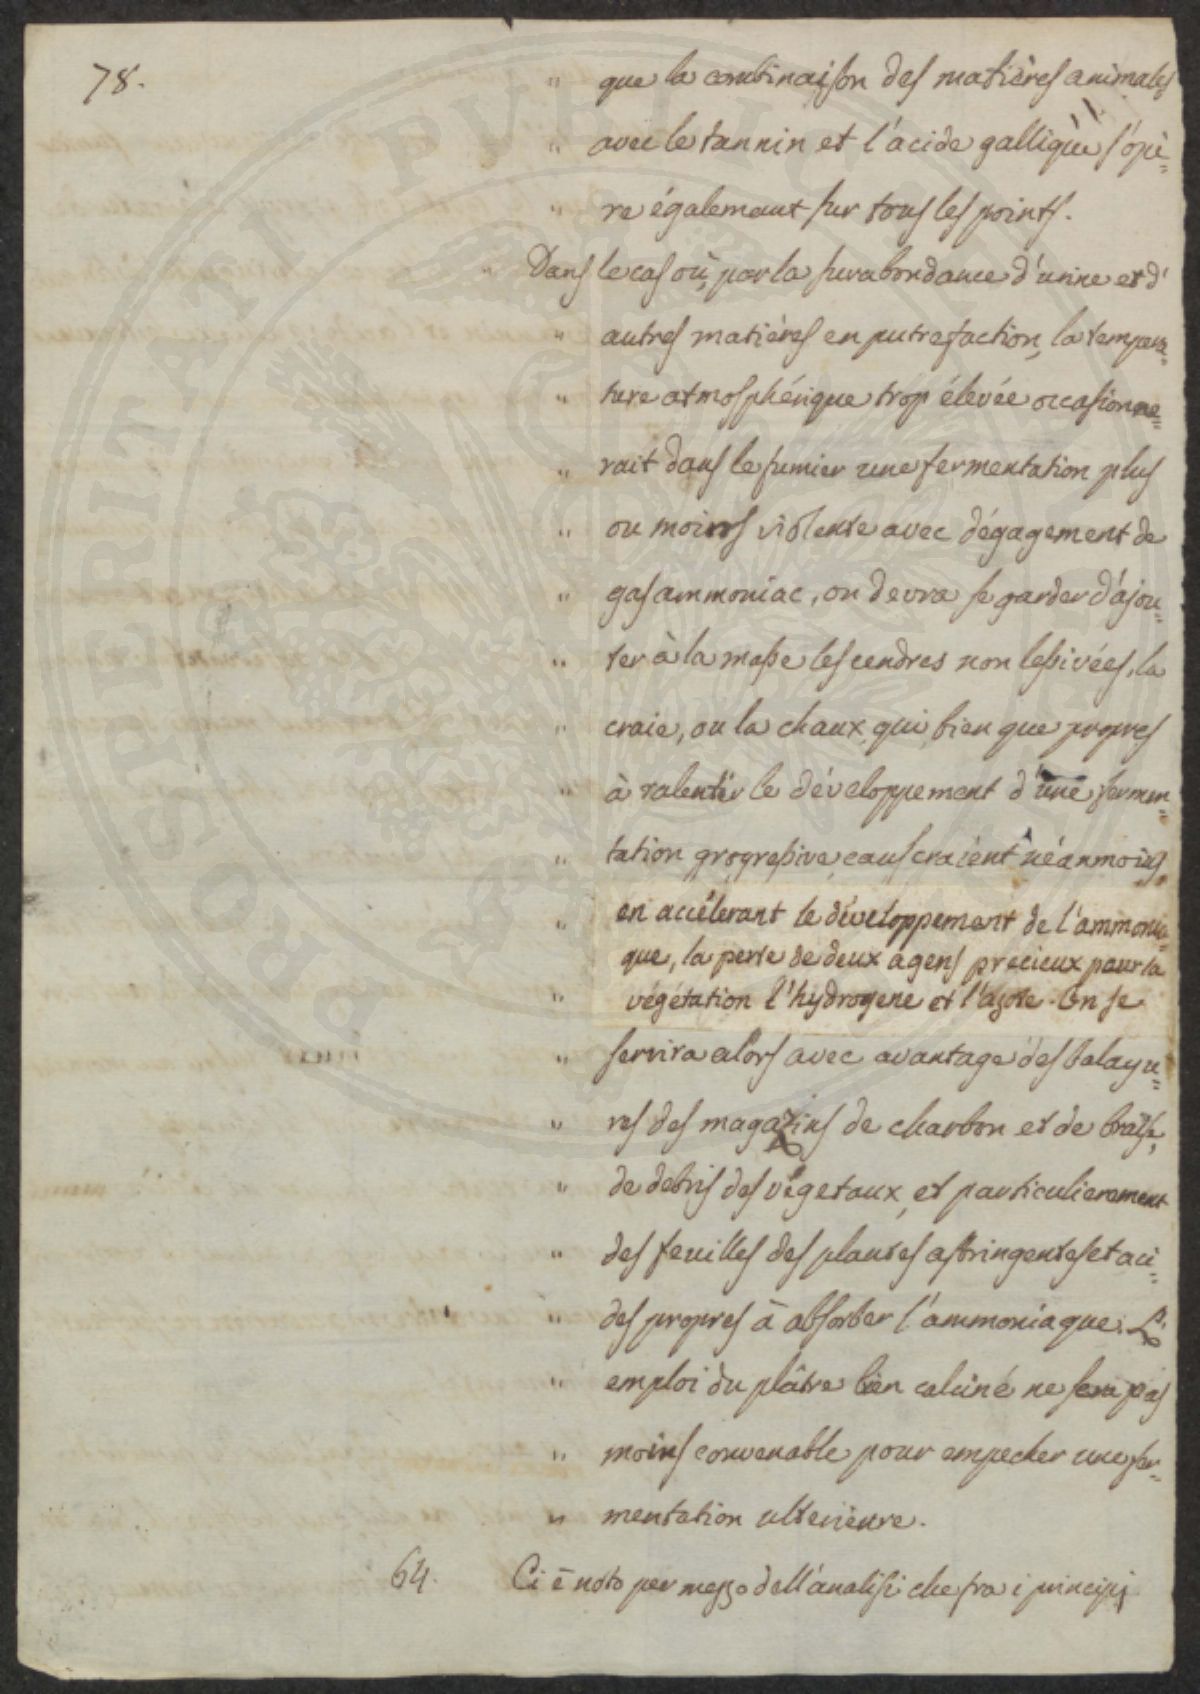 78.
" que la combinaison des matières animales
" avec le tannin et l'acide gallique s'opè=
" re également sur tous les points.
Dans le cas où, par la surabondance d'urine et d'
" autres matières en putrefaction, la tempera=
" ture atmosphérique trop élevée occasionne=
" rait dans le fumier une fermentation plus
" ou moins violente avec dégagement de
" gas ammoniac, on devra se garder d'ajou=
" ter à la masse les cendres non lessivées, la
" craie, ou la chaux, qui bien que propres
" à ralentir le développement d'une fermen=
" tation progressive, causeraient néanmoins,
" en accélerant le développement de l'ammonia=
que, la perte de deux agens précieux pour la
" végétation l'hydrogene et l'azote. On se
" servira alors avec avantage des balayu=
" res des magazins de charbon et de braise,
" de debris des végetaux, et particulierement
" des feuilles des plantes astringentes et aci=
" des propres à absorber l'ammoniaque. L'
" emploi du plâtre bien calciné ne sera pas
" moins convenable pour empecher une fer=
" mentation ulterieure.
64. Ci è noto per mezzo dell'analisi che fra i principj
PROSPERITATI PUBLICAE